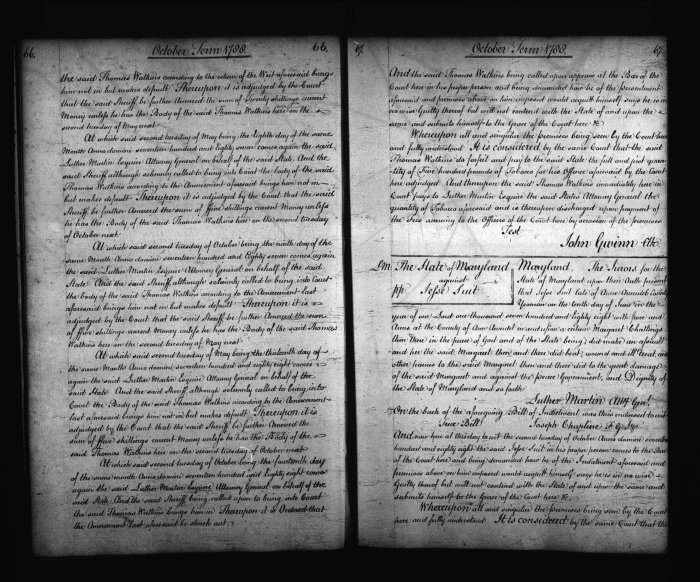 66. October Term 1788. 66.
the said Thomas Watkins according to the return of the Writ aforesaid brings
him not in but makes default. Thereupon it is adjudged by the Court
that the said Sheriff be further Amerced the sum of twenty shillings current
Money unless he has the Body of the said Thomas Watkins here on the
second tuesday of May next
At which said second tuesday of May being the Eighth day of the same
Month Anno domini seventeen hundred and Eighty seven comes again the said
Luther Martin Esquire Attorney General on behalf of the said State. And the
said Sheriff although solemnly called to bring into Court the body of the said
Thomas Watkins according to the Amercement aforesaid brings him not in
but makes default Thereupon it is adjudged by the Court that the said
Sheriff be further Amerced the sum of fifty shillings current Money unless
he has the Body of the said Thomas Watkins here on the second tuesday
of October next.
At which said second tuesday of October being the ninth day of the
same Month Anno domini seventeen hundred and Eighty seven comes again
the said Luther Martin Esquire Attorney General on behalf of the said
State. And the said Sheriff although solemnly called to bring into Court
the body of the said Thomas Watkins according to the Amercement last
aforesaid brings him not in but makes default Thereupon it is
adjudged by the Court that the said Sheriff be further Amerced the sum
of fifty shillings current Money unless he has the Body of the said Thomas
Watkins here on the second tuesday of May next
At which said second tuesday of May being the thirteenth day of
the same Month Anno domini seventeen hundred and Eighty eight comes
again the said Luther Martin Esquire Attorney General on behalf of the
said State And the said Sheriff although solemnly called to bring into
Court the Body of the said Thomas Watkins according to the Amercement
last aforesaid brings him not in but makes default. Thereupon it is
adjudged by the Court that the said Sheriff be further Amerced the
sum of fifty shillings current Money unless he has the Body of the
said Thomas Watkins here on the second tuesday of October next
At which said second tuesday of October being the fourteenth day
of the same month Anno domini seventeen hundred and Eighty eight comes
again the said Luther Martin Esquire Attorney General on behalf of the
said State And the said Sheriff being called upon to bring into Court
the said Thomas Watkins brings him in Thereupon it is Ordered that
the Amercement last aforesaid be struck out
67. October Term 1788. 67.
And the said Thomas Watkins being called upon appears at the Bar of the
Court here in his proper person and being demanded how he of the presentment
aforesaid and premises above on him imposed would acquit himself says he is in
no wise Guilty thereof but will not contend with the State of and upon the
same and submits himself to the Grace of the Court here &c.
Whereupon all and singular the premises being seen by the Court here
and fully understood It is considered by the same Court that the said
Thomas Watkins do forfeit and pay to the said State the full and just quan
tity of five hundred pounds of Tobacco for his Offence aforesaid by the Court
here adjudged And thereupon the said Thomas Watkins immediately here in
Court pays to Luther Martin Esquire the said States Attorney General the
quantity of Tobacco aforesaid and is thereupon discharged upon payment of
the fees accruing to the Officers of the Court here by occasion of the premises
Test
John Gwinn Clk.
The State of Maryland
against
Jesse Suit
Maryland, The Jurors for the
State of Maryland upon their Oath present
that Jesse Suit late of Anne Arundel County
Yeoman on the tenth day of June in the
year of our Lord one thousand seven hundred and Eighty eight with force and
Arms at the County of Ann Arundel in and upon a certain Margaret
then there in the peace of God and of the State being did make an assault
and her the said Margaret then and there did beat, wound and ill treat and
other harms to the said Margaret then and there did to the great damage
of the said Margaret and against the peace Government, and Dignity of
the State of Maryland and so forth.
Luther Martin Atty Genl.
On the back of the aforegoing Bill of Indictment was thus endorsed to wit
True Bill Joseph Chapline
And now here at this day to wit the second tuesday of October Anno domini seventeen
hundred and eighty eight the said Jesse Suit in his proper person comes to the Bar
of the Court here and being demanded how he of the Indictment aforesaid and
premises above on him imposed would acquit himself says he is in no wise
Guilty thereof but will not contend with the State of and upon the same and
submits himself to the Grace of the Court here &c.
Whereupon all and singular the premises being seen by the Court
here and fully understood It is considered by the same Court that the